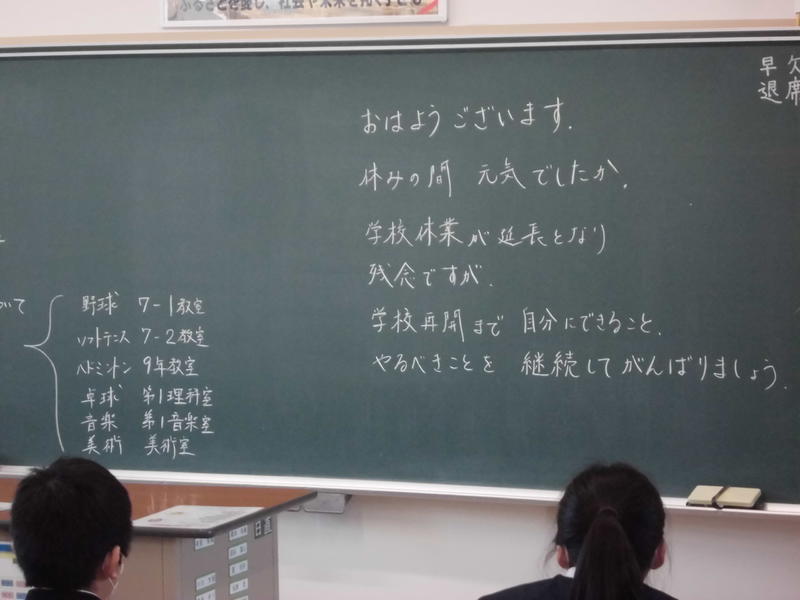 ふるさとを愛し、社会や未来を拓く子ども
おはようございます.
休みの間 元気でしたか.
学校休業が延長となり
残念ですが.
学校再開まで 自分にできること.
やるべきことを 継続してがんばりましょう.
欠席
早退
ついて
野球 7-1教室
ソフトテニス 7-2教室
バドミントン 9年教室
卓球 第1理科室
音楽 第1音楽室
美術 美術室
日直